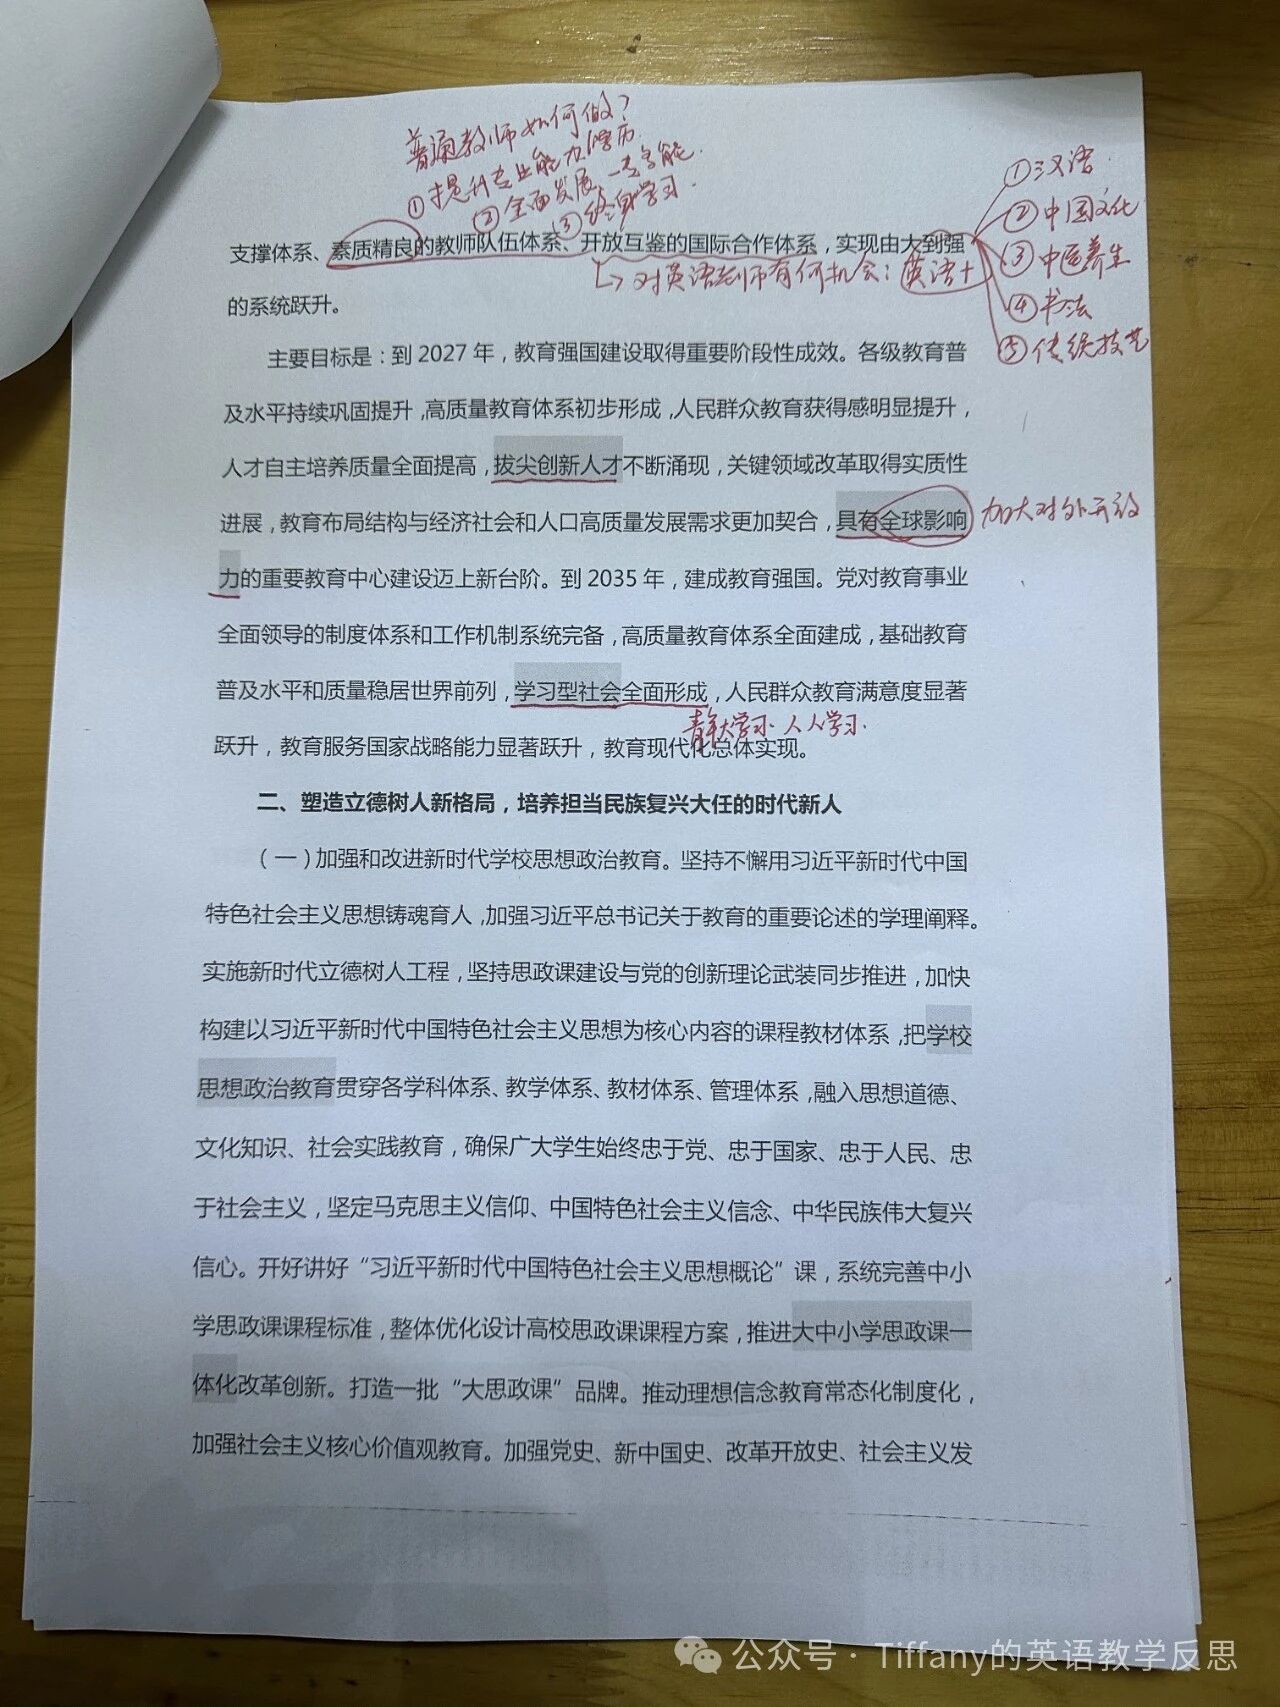 普通教师如何做？
①提升专业能力/学历
②全面发展，一专多能.
③终身学习.
①汉语.
②中国文化
③中医养生
④书法
⑤传统技艺
支撑体系、素质精良的教师队伍体系、开放互鉴的国际合作体系，实现由大到强
↳对英语老师有何机会：英语+
的系统跃升。
主要目标是：到 2027 年，教育强国建设取得重要阶段性成效。各级教育普
及水平持续巩固提升，高质量教育体系初步形成，人民群众教育获得感明显提升，
人才自主培养质量全面提高，拔尖创新人才不断涌现，关键领域改革取得实质性
进展，教育布局结构与经济社会和人口高质量发展需求更加契合，具有全球影响
加大对外开放
力的重要教育中心建设迈上新台阶。到 2035 年，建成教育强国。党对教育事业
全面领导的制度体系和工作机制系统完备，高质量教育体系全面建成，基础教育
普及水平和质量稳居世界前列，学习型社会全面形成，人民群众教育满意度显著
青年大学习·人人学习.
跃升，教育服务国家战略能力显著跃升，教育现代化总体实现。
二、塑造立德树人新格局，培养担当民族复兴大任的时代新人
（一）加强和改进新时代学校思想政治教育。坚持不懈用习近平新时代中国
特色社会主义思想铸魂育人，加强习近平总书记关于教育的重要论述的学理阐释。
实施新时代立德树人工程，坚持思政课建设与党的创新理论武装同步推进，加快
构建以习近平新时代中国特色社会主义思想为核心内容的课程教材体系，把学校
思想政治教育贯穿各学科体系、教学体系、教材体系、管理体系，融入思想道德、
文化知识、社会实践教育，确保广大学生始终忠于党、忠于国家、忠于人民、忠
于社会主义，坚定马克思主义信仰、中国特色社会主义信念、中华民族伟大复兴
信心。开好讲好“习近平新时代中国特色社会主义思想概论”课，系统完善中小
学思政课课程标准，整体优化设计高校思政课课程方案，推进大中小学思政课一
体化改革创新。打造一批“大思政课”品牌。推动理想信念教育常态化制度化，
加强社会主义核心价值观教育。加强党史、新中国史、改革开放史、社会主义发
公众号·Tiffany的英语教学反思